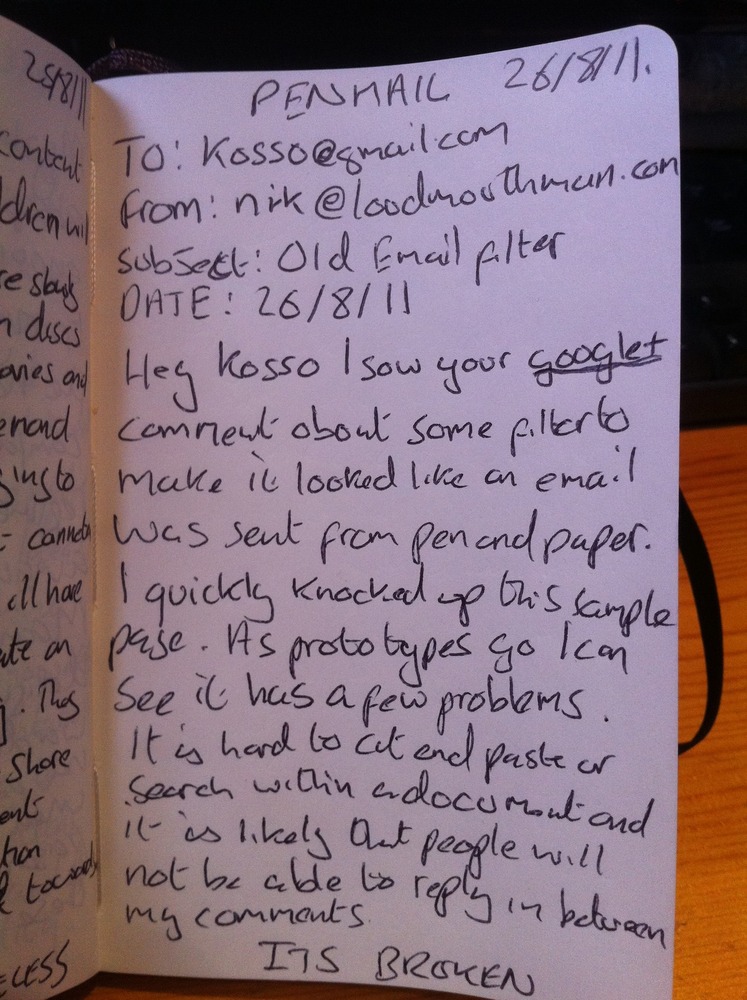 25/8/11
content
ldren will
re slowly
n discs
ovies and
emand
ging to
cannot
ill have
ute on
. They
Share
ent
tion
towards
ECESS
PENMAIL 26/8/11.
TO: Kosso@gmail.com
from: nik@loudmouthman.com
subject: Old Email filter
DATE: 26/8/11
Hey Kosso I saw your googlet
comment about some filter to
make it looked like an email
was sent from pen and paper.
I quickly knocked up this sample
page. As prototypes go I can
see it has a few problems.
It is hard to cut and paste or
search within a document and
it is likely that people will
not be able to reply in between
my comments.
ITS BROKEN